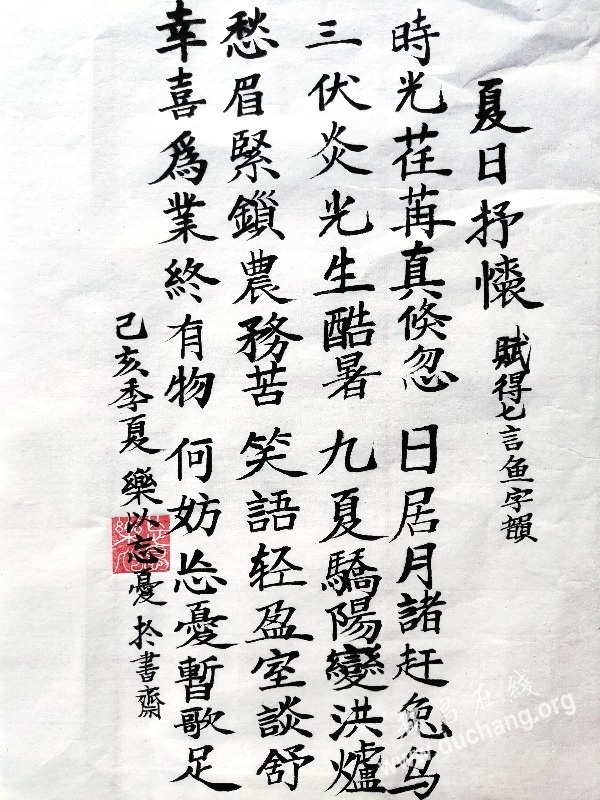 夏日抒懷
賦得七言鱼字韻
時光荏苒真倐忽 日居月諸赶兔乌
三伏炎光生酷暑 九夏驕陽變洪爐
愁眉緊鎖農務苦 笑語轻盈室談舒
幸喜爲業終有物 何妨忘憂暫歌足
己亥季夏 樂以忘憂於書齋
都昌在线
www.duchang.org